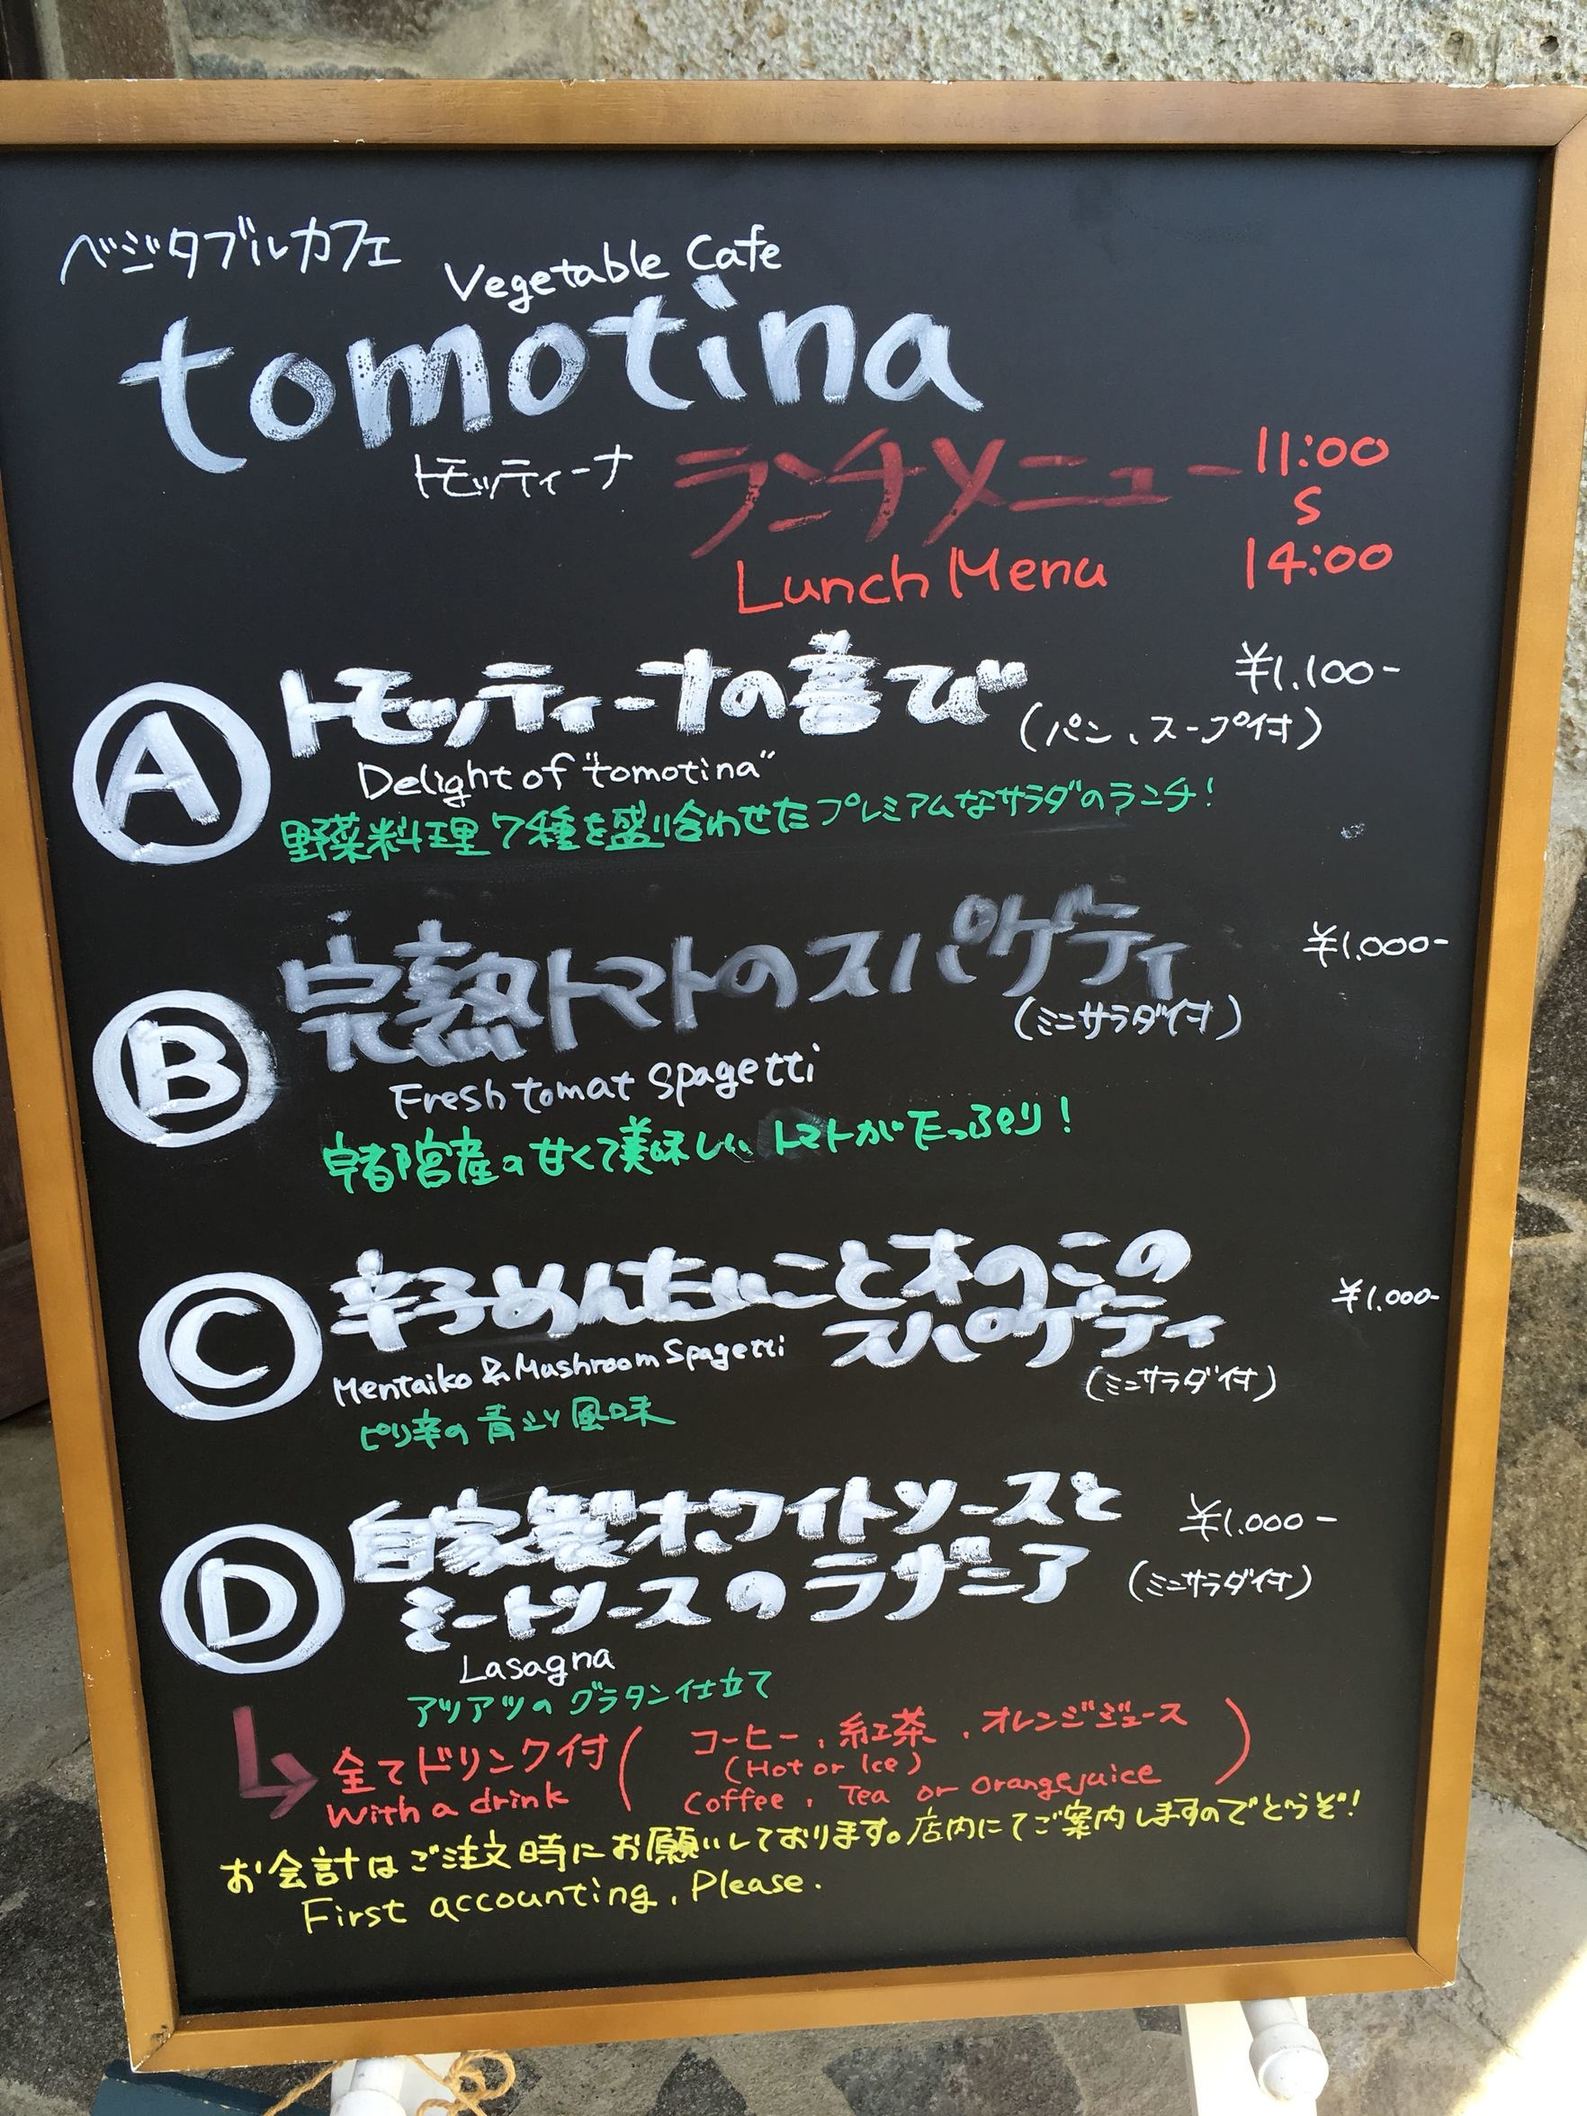 ベジタブルカフェ
Vegetable Cafe
tomotina
トモッティーナ
ランチメニュー 11:00
S
14:00
Lunch Menu
A トモッティーナの喜び ¥1.100-
(パン、スープ付)
Delight of "tomotina"
野菜料理7種を盛り合わせたプレミアムなサラダのランチ!
B 完熟トマトのスパゲティ ¥1.000-
(ミニサラダ付)
Fresh tomat Spagetti
宇都宮産の甘くて美味しいトマトがたっぷり!
C 辛子めんたいこときのこの ¥1.000-
スパゲティ
Mentaiko & Mushroom Spagetti
(ミニサラダ付)
ピリ辛の青ジソ風味
D 自家製ホワイトソースと ¥1.000-
ミートソースのラザニア (ミニサラダ付)
Lasagna
アツアツのグラタン仕立て
全てドリンク付 ( コーヒー、紅茶、オレンジジュース )
(Hot or Ice)
With a drink Coffee, Tea or Orangejuice
お会計はご注文時にお願いしております。店内にてご案内しますのでどうぞ!
First accounting, Please.